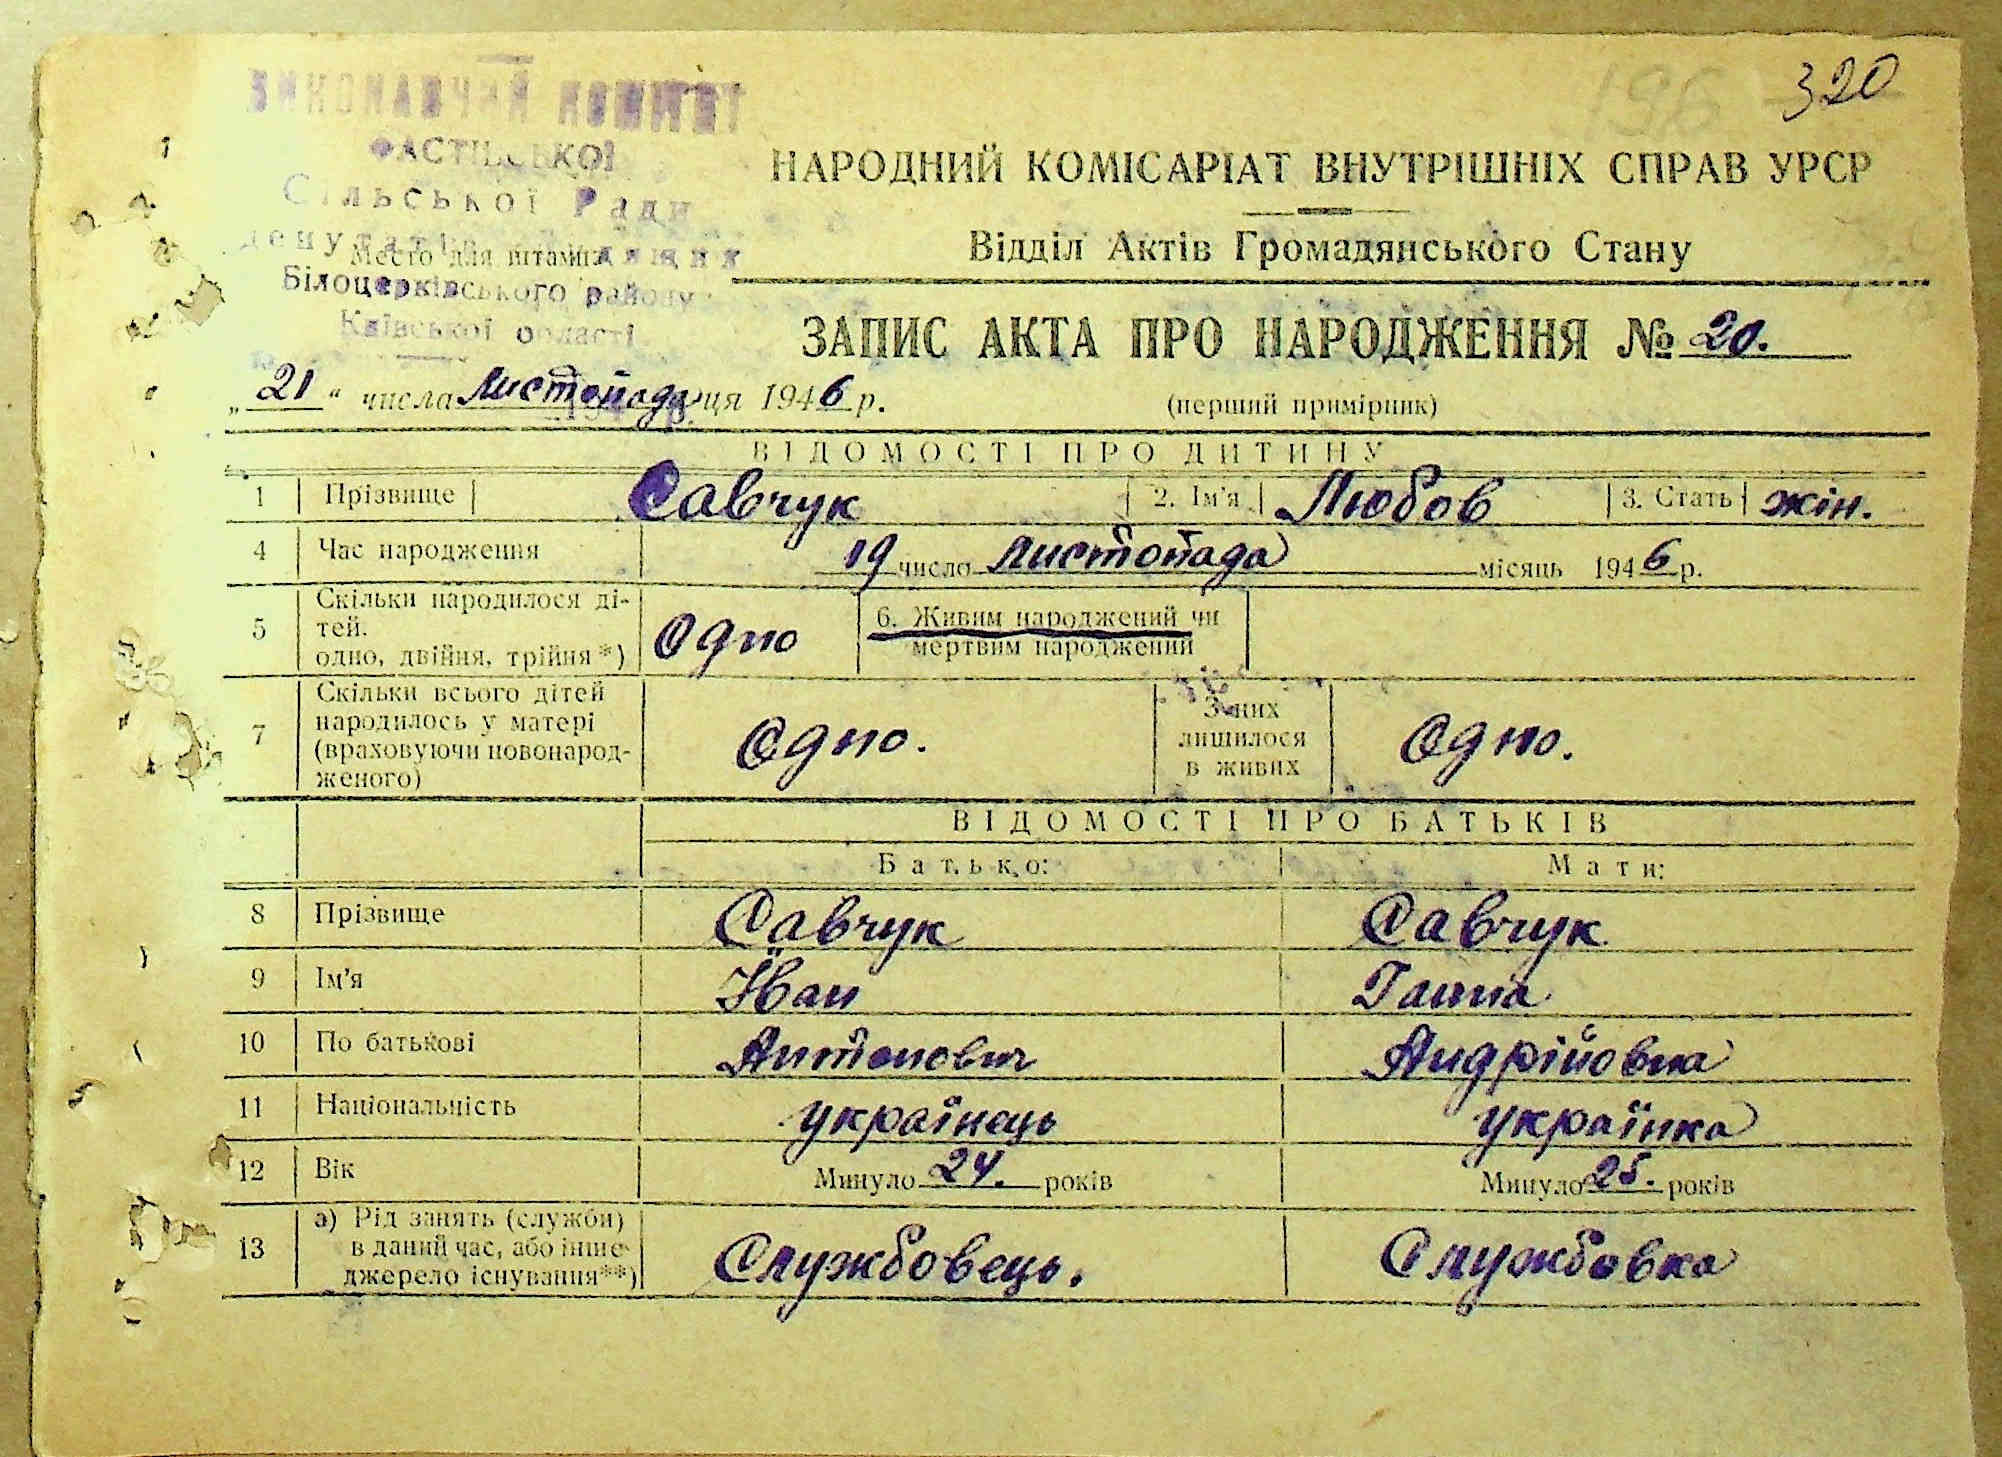 320
196
ВИКОНАВЧИЙ КОМІТЕТ
ФАСТІВСЬКОЇ
Сільської Ради
депутатів трудящих
Место для штампа
Білоцерківського району
Київської області
НАРОДНИЙ КОМІСАРІАТ ВНУТРІШНІХ СПРАВ УРСР
Відділ Актів Громадянського Стану
ЗАПИС АКТА ПРО НАРОДЖЕННЯ № 20.
„21“ числа Листопада ця 1946 р.
(перший примірник)
ВІДОМОСТІ ПРО ДИТИНУ
1 Прізвище Савчук 2. Ім'я Любов 3. Стать жін.
4 Час народження 19 число Листопада місяць 1946 р.
5 Скільки народилося ді-
тей.
одно, двійня, трійня*) Одно
6. Живим народжений чи
мертвим народжений
7 Скільки всього дітей
народилось у матері
(враховуючи новонарод-
женого) Одно.
З них
лишилося
в живих Одно.
ВІДОМОСТІ ПРО БАТЬКІВ
Батько: Мати:
8 Прізвище Савчук Савчук
9 Ім'я Іван Ганна
10 По батькові Антонович Андрійовна
11 Національність українець українка
12 Вік Минуло 24. років Минуло 25. років
13 а) Рід занять (служби)
в даний час, або інше
джерело існування**) Службовець. Службовка